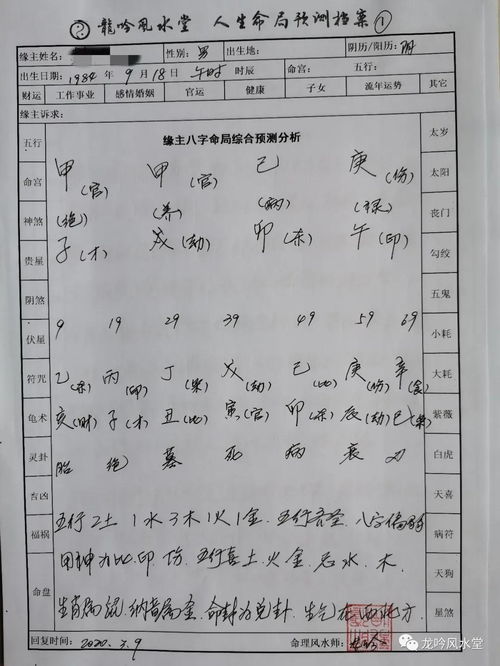 ② 龍吟风水堂 人生命局预测档案 ①
缘主姓名: 性别: 男 出生地: 阴历/阳历: 阴
出生日期: 1984 年 9 月 18 日 午时 时辰 命宫: 五行:
财运 工作事业 感情婚姻 官运 健康 子女 流年运势 其它
缘主诉求:
缘主八字命局综合预测分析
五行
命宫
神煞
贵星
阴煞
伏星
符咒
龟术
灵卦
吉凶
福祸
命盘
甲(官) 甲(官) 己 庚(伤)
(绝) (养) (病) (禄)
子(才) 戌(劫) 卯(杀) 午(印)
9 19 29 39 49 59 69
乙(杀) 丙(印) 丁(枭) 戊(劫) 己(比) 庚(伤) 辛(食)
亥(财) 子(才) 丑(比) 寅(官) 卯(杀) 辰(劫) 巳(枭)
胎 绝 墓 死 病 衰
五行2土1水3木1火1金.五行齐全.八字偏弱
用神为比.印.伤.五行喜土.火金.忌水.木.
生肖属鼠.纳音属金.命卦为兑卦.生气在西北方
太岁
太阳
丧门
勾绞
五鬼
小耗
大耗
紫薇
白虎
天喜
病符
天狗
星煞
回复时间: 2020.3.9 命理风水师:
龙吟风水堂